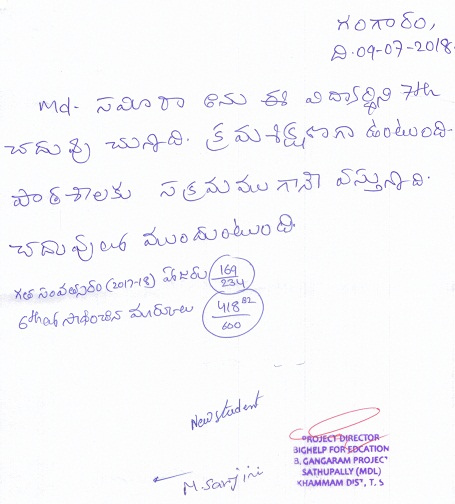 గంగారం,
ది. 09-07-2018.
Md- సమీరా అను ఈ విద్యార్థిని 7th
చదువు చున్నది. క్రమశిక్షణగా ఉంటుంది.
పాఠశాలకు సక్రమముగానే వస్తున్నది.
చదువులో ముందుంటుంది.
గత సంవత్సరం (2017-18) హాజరు 169/234
6th లో సాధించిన మార్కులు 418 B2/600
New student
M. Sarojini
PROJECT DIRECTOR
BIGHELP FOR EDCATION
B, GANGARAM PROJECT
SATHUPALLY (MDL)
KHAMMAM DIST, T. S